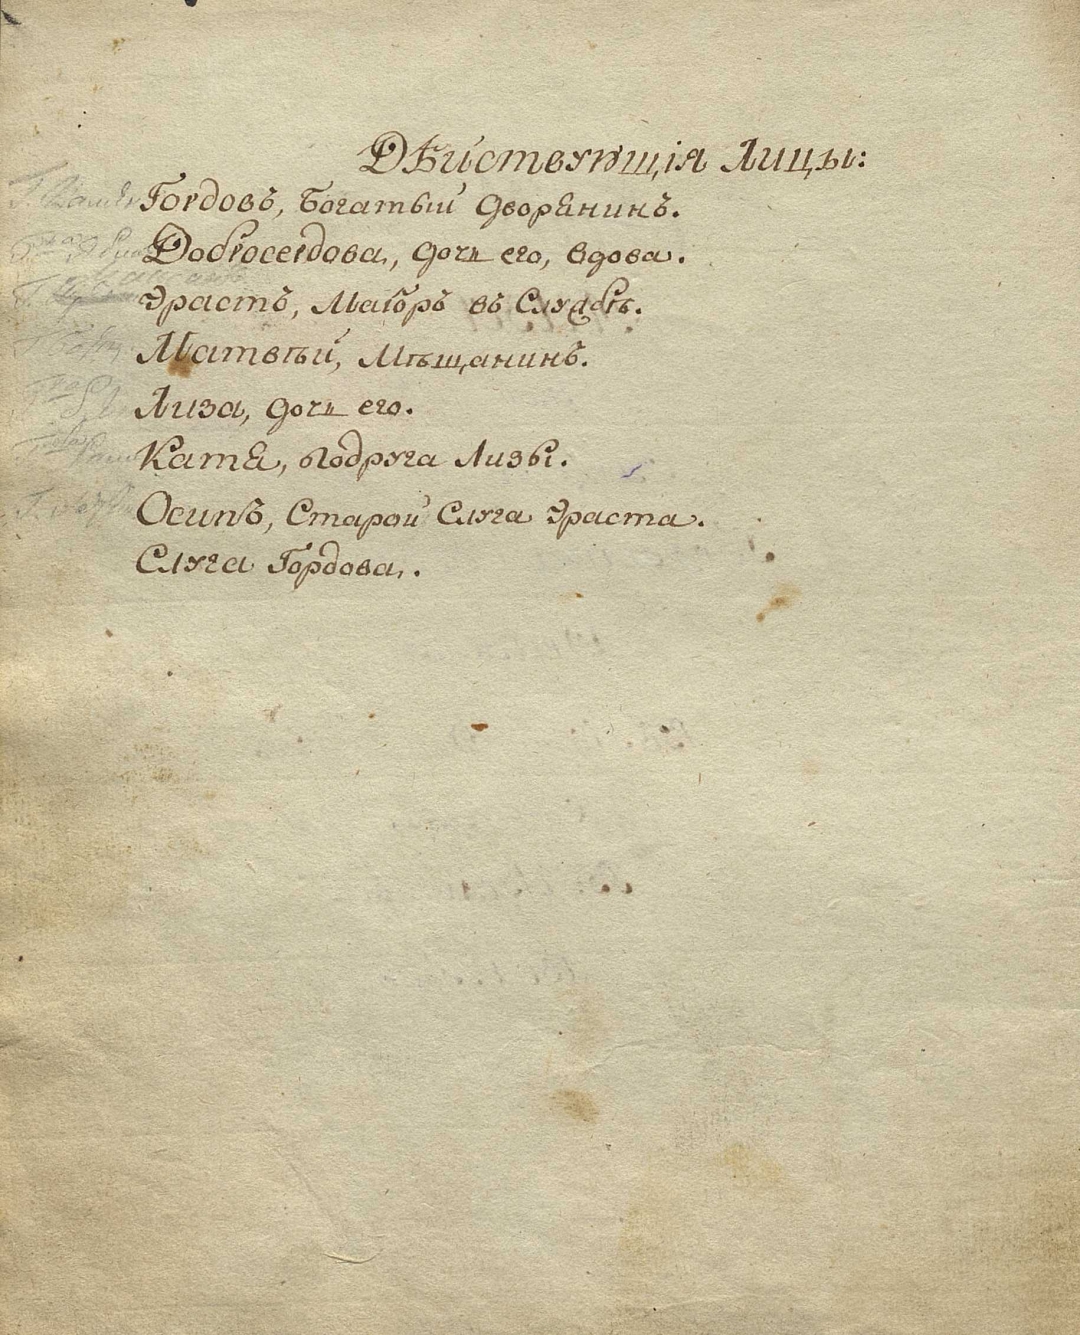 Дѣйствующія Лицы:
Гордовъ, Богатый Дворянинъ.
Добросердова, дочь его, вдова.
Эрастъ, Маіоръ въ Службѣ.
Матвѣй, Мѣщанинъ.
Лиза, дочь его.
Катя, Подруга Лизы.
Осипъ, Старой Слуга Эраста.
Слуга Гордова.